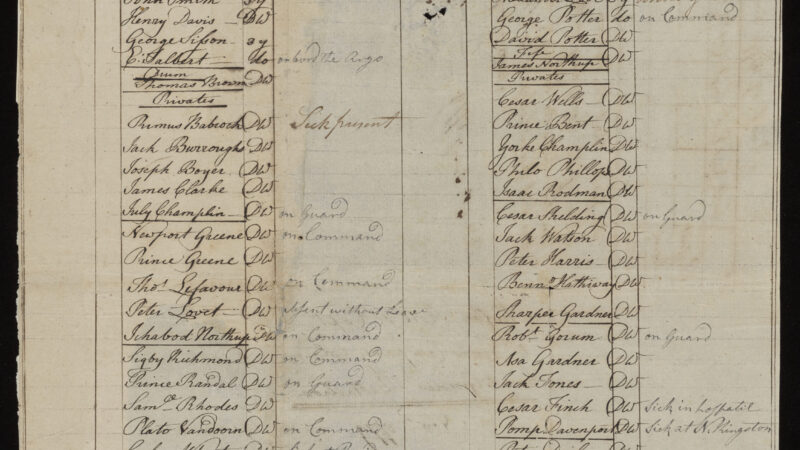 John Smith 3y
Henry Davis DW
George Sisson 3y
E: Talbert do on bord the Argo
Drum
Thomas Brown DW
Privates
Primus Babcock DW Sick present
Jack Burroughs DW
Joseph Boyer DW
James Clarke DW
July Champlin DW on Guard
Newport Greene DW on Command
Prince Greene DW
Thos. Lefavour DW on Command
Peter Lovet DW Absent without Leave
Ichabod Northup DW on Command
Sigby Richmond DW on Command
Prince Randal DW on Guard
Saml. Rhodes DW
Plato Vandoorn DW on Command
George Potter do on Command
David Potter DW
Fife
James Northup DW
Privates
Cesar Wells DW
Prince Bent DW
Yorke Champlin DW
Philo Phillops DW
Isaac Rodman DW
Cesar Shelding DW on Guard
Jack Watson DW
Peter Harris DW
Bennn. Hathiway DW
Sharper Gardner DW
Robt. Gorum DW on Guard
Asa Gardner DW
Jack Jones DW
Cesar Finch DW Sick in hospatil
Pomp Davenport DW Sick at N. Kingston